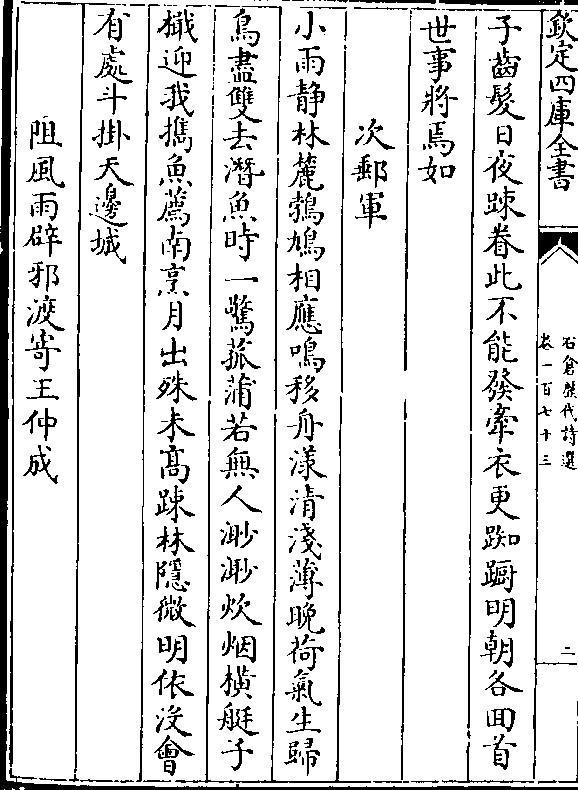 欽定四庫全書
石倉歷代詩選
卷一百七十三
二
子齒髮日夜踈眷此不能發牽衣更踟蹰明朝各回首
世事將焉如
次郵軍
小雨静林麓鵓鳩相應鳴移舟漾清淺薄晚荷氣生歸
鳥盡雙去潛魚時一驚菰蒲若無人渺渺炊烟横艇子
檥迎我擕魚薦南烹月出殊未髙踈林隱微明依没會
有處斗掛天邊城
阻風雨辟邪渡寄王仲成